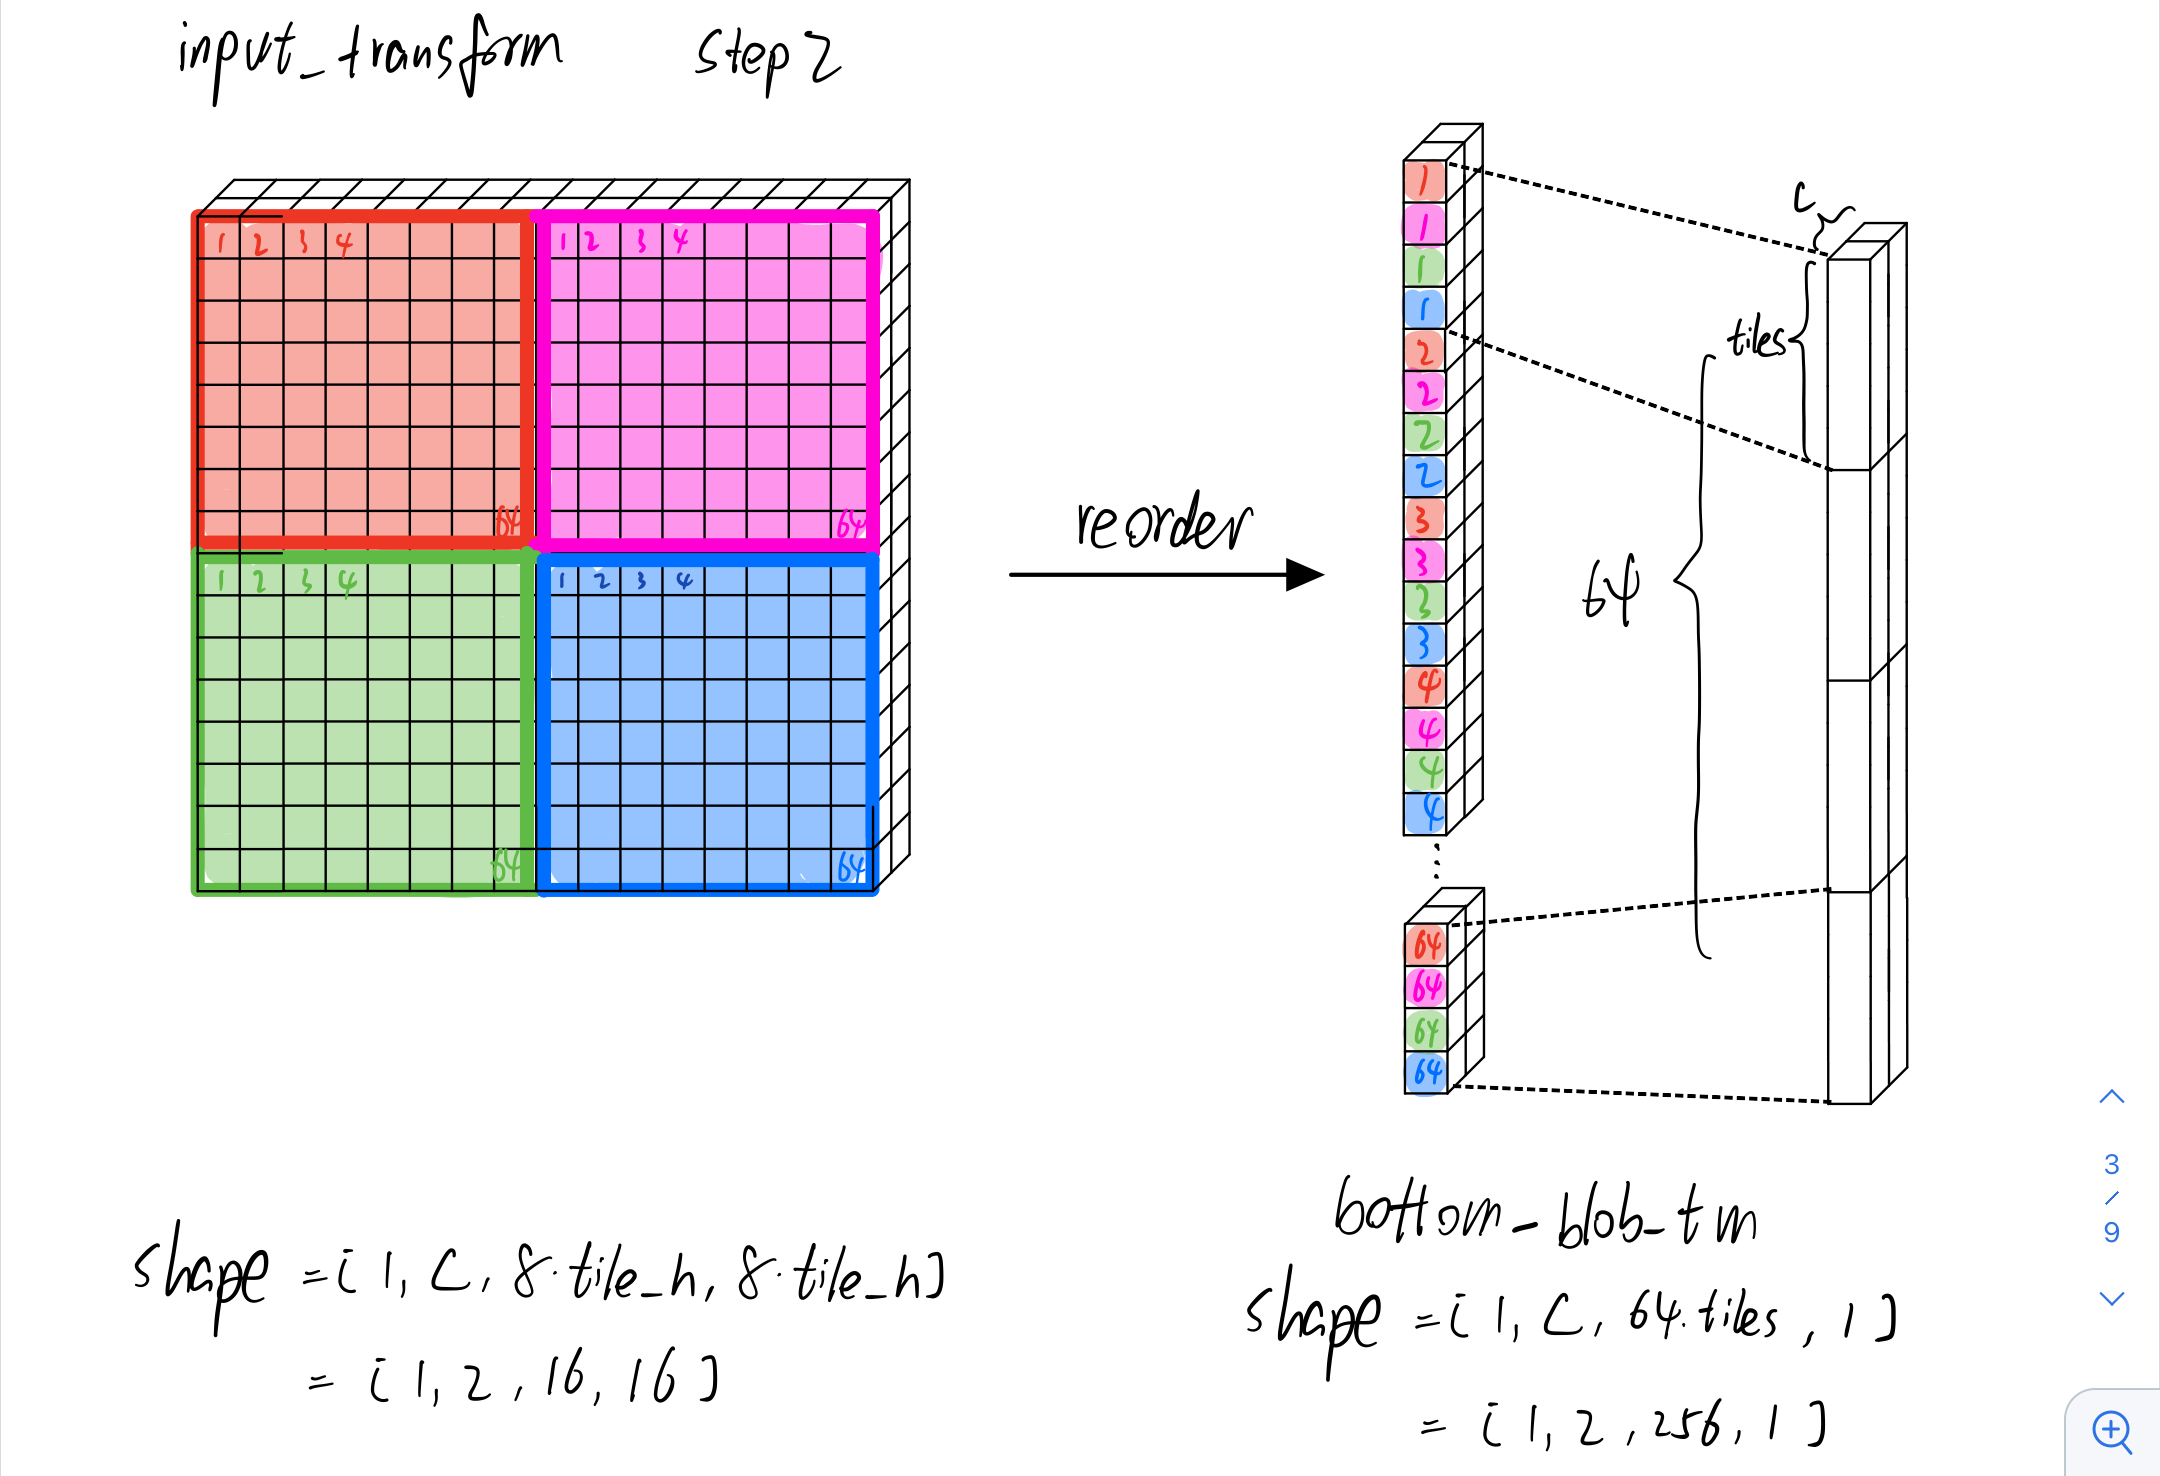 input_transform step 2
1 2 3 4 1 2 3 4
64 64
1 2 3 4 1 2 3 4
64 64
reorder
1
1
1
1
2
2
2
2
3
3
3
3
4
4
4
4
64
64
64
64
C
tiles
64
shape = [ 1, C, 8·tile_h, 8·tile_h ]
= [ 1, 2, 16, 16 ]
bottom_blob_tm
shape = [ 1, C, 64·tiles, 1 ]
= [ 1, 2, 256, 1 ]
3
/
9